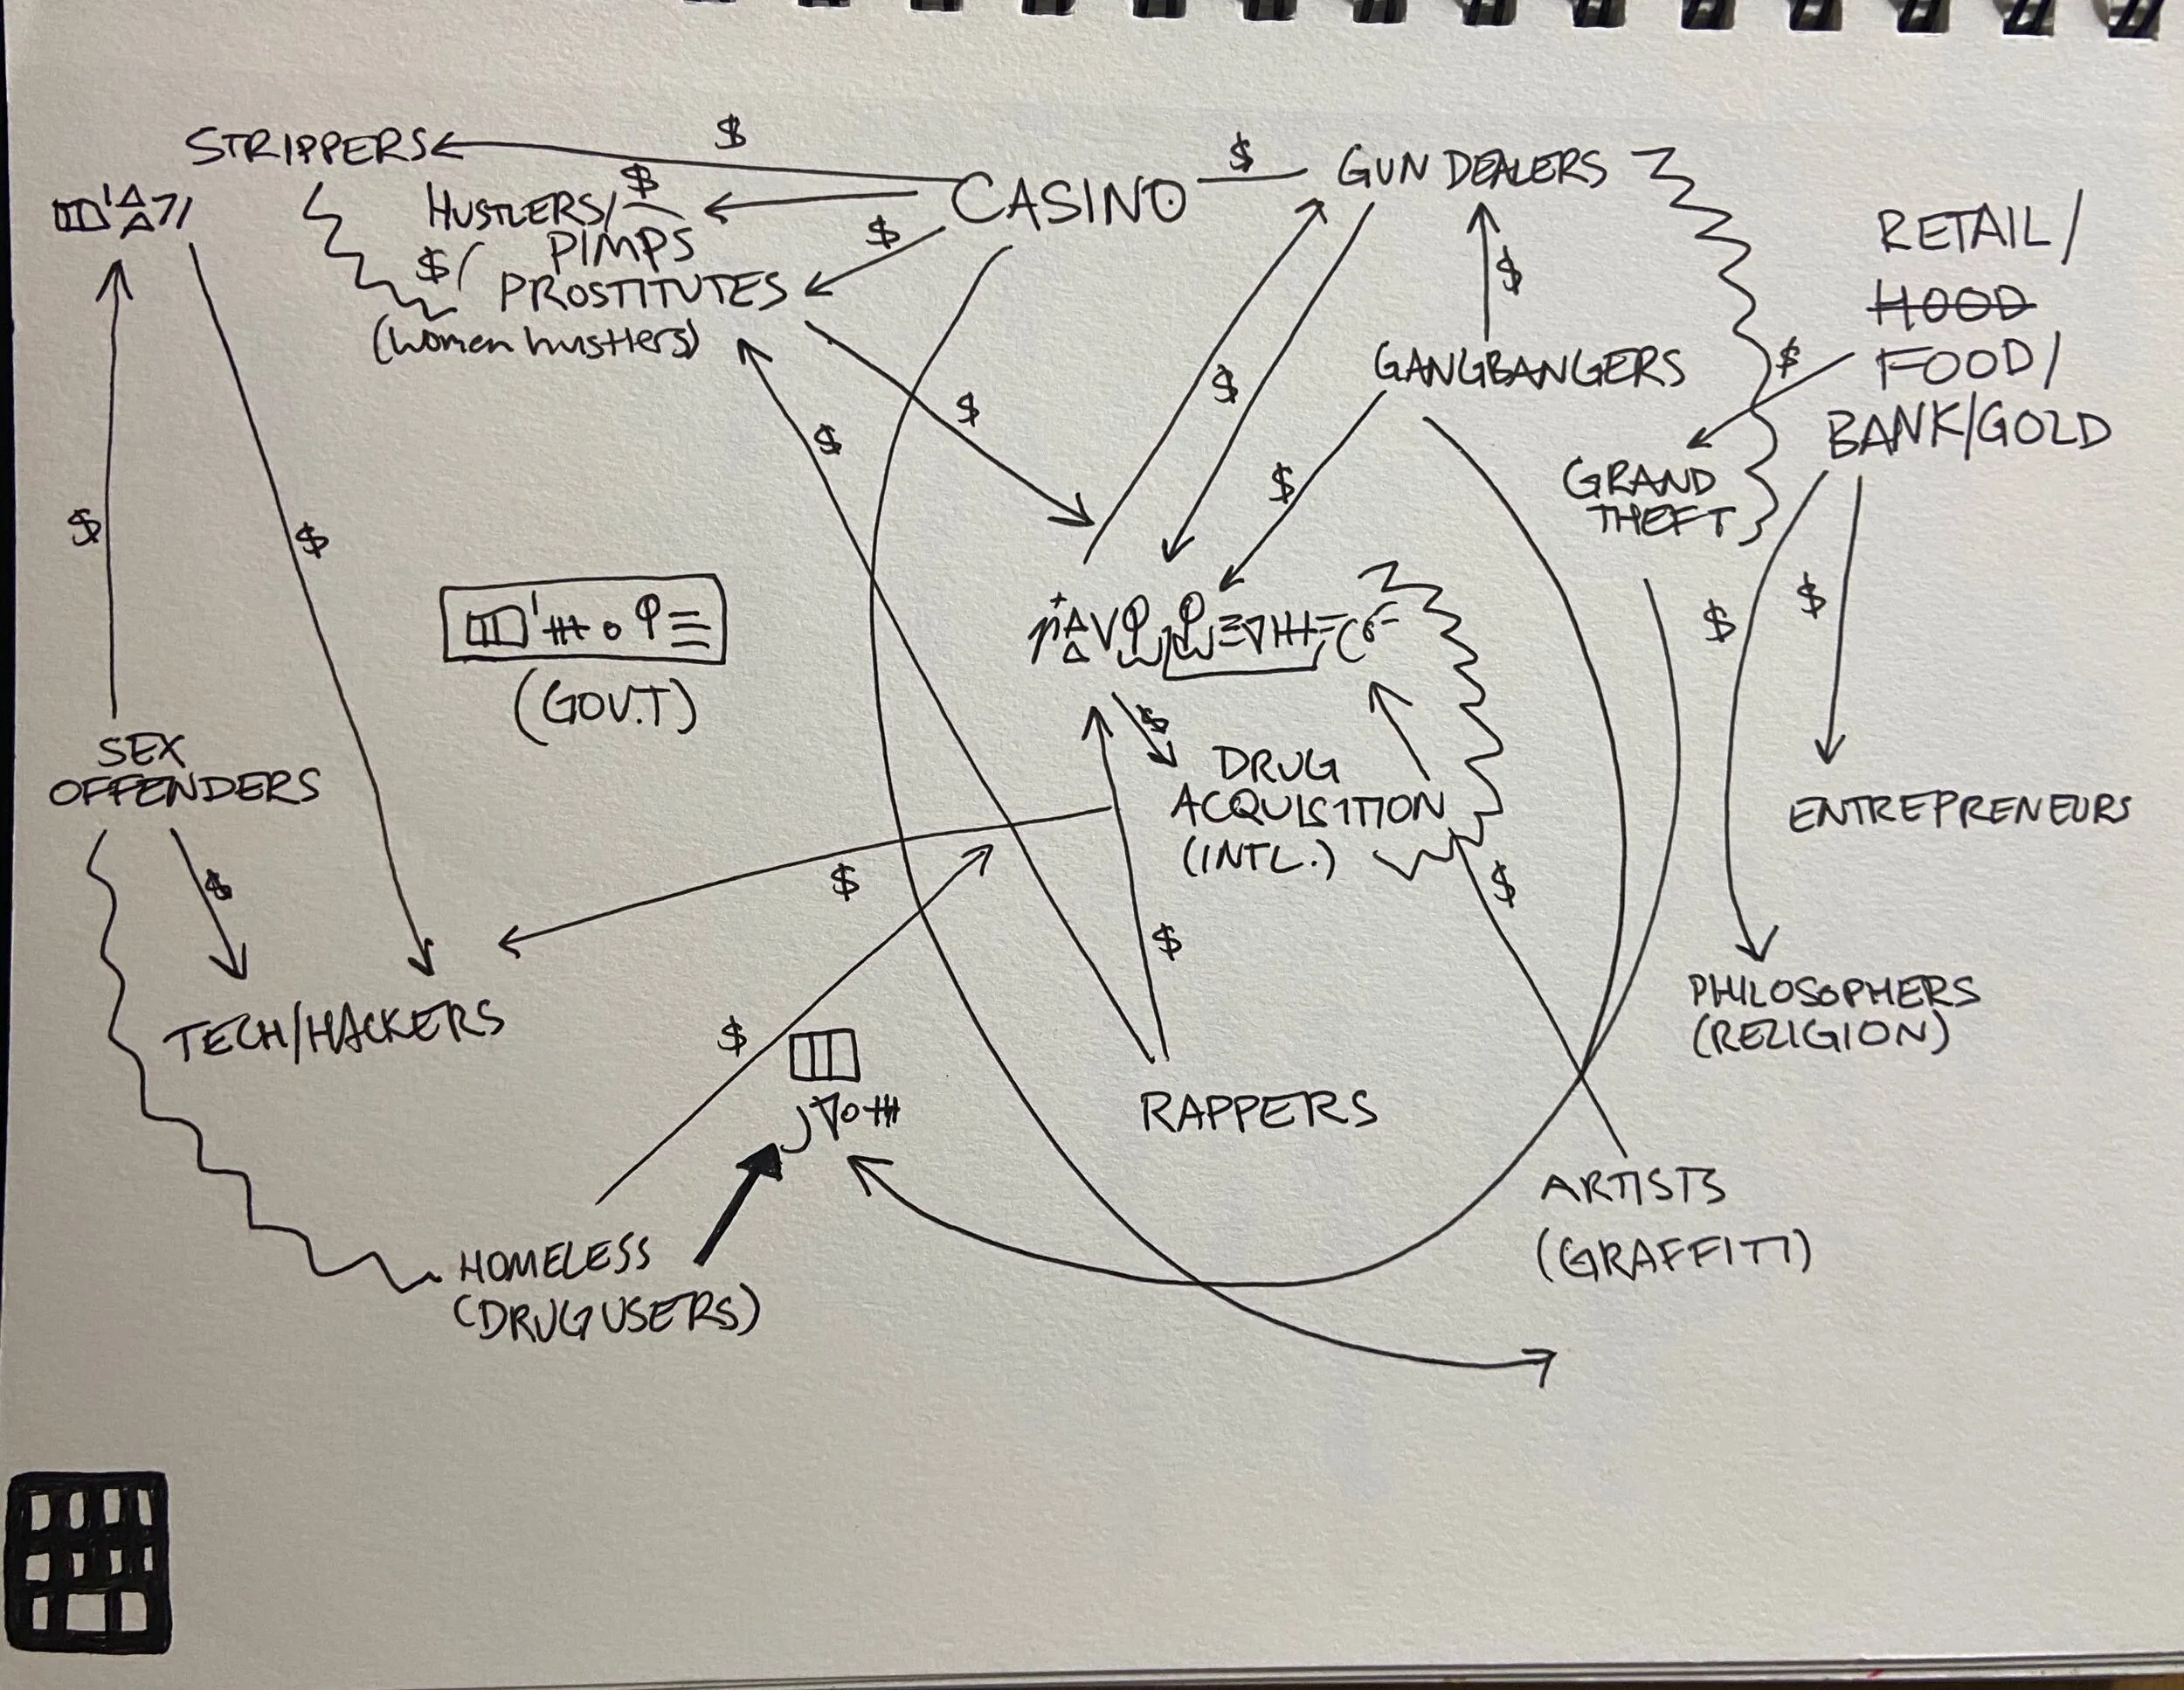 STRIPPERS
$
CASINO
$
GUN DEALERS
HUSTLERS/
$
PIMPS
$
$/
PROSTITUTES
(women hustlers)
RETAIL/
HOOD
FOOD/
BANK/GOLD
$
GANGBANGERS
$
GRAND
THEFT
$
$
$
$
$
$
$
$
$
(GOV.T)
SEX
OFFENDERS
$
DRUG
ACQUISITION
(INTL.)
ENTREPRENEURS
$
$
$
$
TECH/HACKERS
$
PHILOSOPHERS
(RELIGION)
RAPPERS
ARTISTS
(GRAFFITI)
HOMELESS
(DRUG USERS)